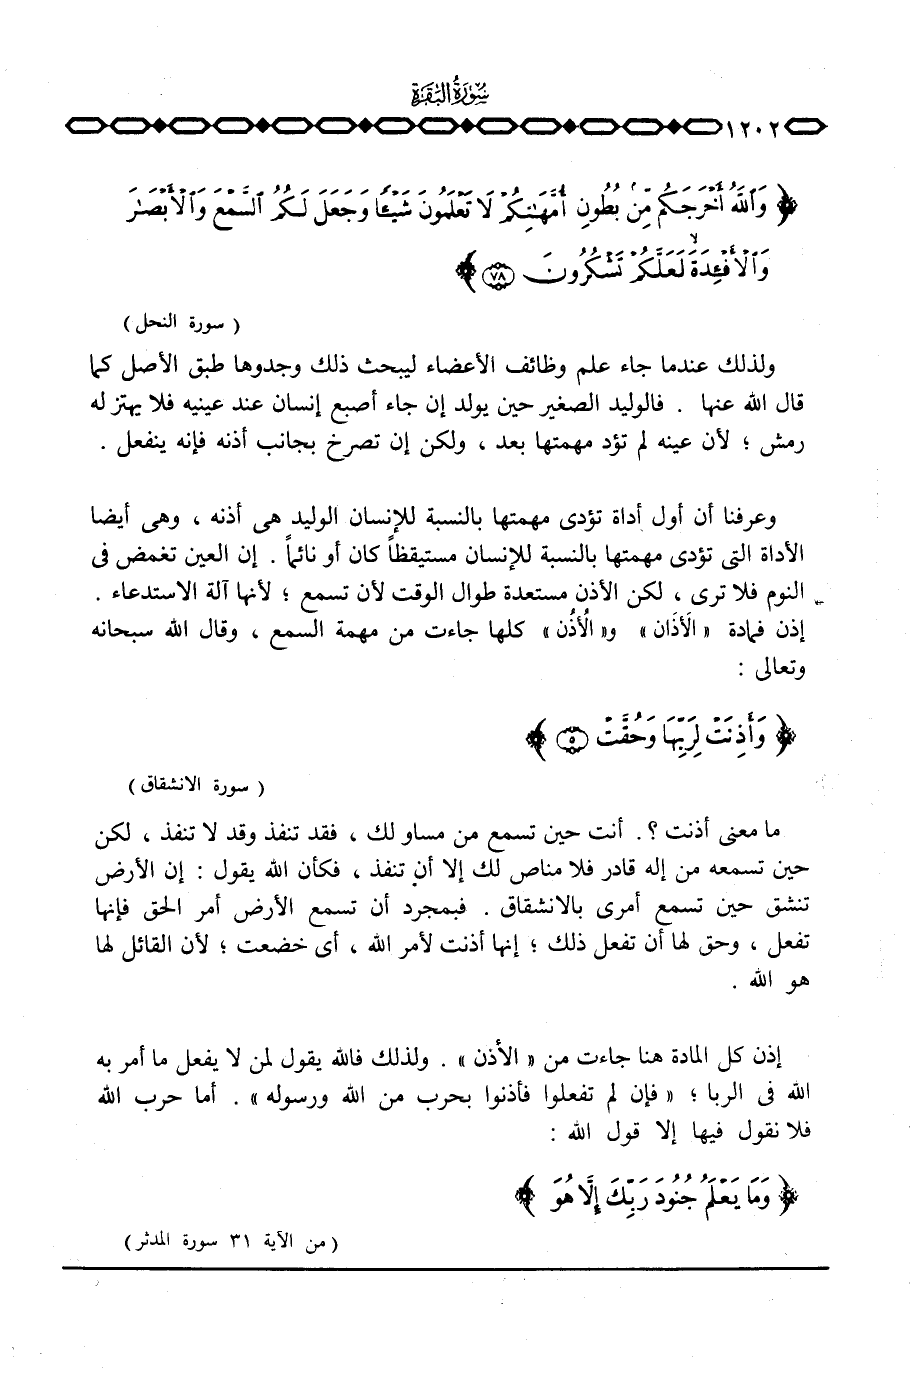 سُورَةُ البَقَرَةِ
١٢٠٢
﴿ وَٱللَّهُ أَخْرَجَكُم مِّنۢ بُطُونِ أُمَّهَٰتِكُمْ لَا تَعْلَمُونَ شَيْـًٔا وَجَعَلَ لَكُمُ ٱلسَّمْعَ وَٱلْأَبْصَٰرَ
وَٱلْأَفْـِٔدَةَ ۙ لَعَلَّكُمْ تَشْكُرُونَ ٧٨ ﴾
( سورة النحل )
ولذلك عندما جاء علم وظائف الأعضاء ليبحث ذلك وجدوها طبق الأصل كما
قال الله عنها . فالوليد الصغير حين يولد إن جاء أصبع إنسان عند عينيه فلا يهتز له
رمش ؛ لأن عينه لم تؤد مهمتها بعد ، ولكن إن تصرخ بجانب أذنه فإنه ينفعل .
وعرفنا أن أول أداة تؤدى مهمتها بالنسبة للإنسان الوليد هى أذنه ، وهى أيضا
الأداة التى تؤدى مهمتها بالنسبة للإنسان مستيقظاً كان أو نائماً . إن العين تغمض فى
النوم فلا ترى ، لكن الأذن مستعدة طوال الوقت لأن تسمع ؛ لأنها آلة الاستدعاء .
إذن فمادة « الَأذَان » و« الُأذُن » كلها جاءت من مهمة السمع ، وقال الله سبحانه
وتعالى :
﴿ وَأَذِنَتْ لِرَبِّهَا وَحُقَّتْ ٥ ﴾
( سورة الانشقاق )
ما معنى أذنت ؟. أنت حين تسمع من مساو لك ، فقد تنفذ وقد لا تنفذ ، لكن
حين تسمعه من إله قادر فلا مناص لك إلا أن تنفذ ، فكأن الله يقول : إن الأرض
تنشق حين تسمع أمرى بالانشقاق . فبمجرد أن تسمع الأرض أمر الحق فإنها
تفعل ، وحق لها أن تفعل ذلك ؛ إنها أذنت لأمر الله ، أى خضعت ؛ لأن القائل لها
هو الله .
إذن كل المادة هنا جاءت من « الأذن » . ولذلك فالله يقول لمن لا يفعل ما أمر به
الله فى الربا ؛ « فإن لم تفعلوا فأذنوا بحرب من الله ورسوله » . أما حرب الله
فلا نقول فيها إلا قول الله :
﴿ وَمَا يَعْلَمُ جُنُودَ رَبِّكَ إِلَّا هُوَ ﴾
( من الآية ٣١ سورة المدثر )